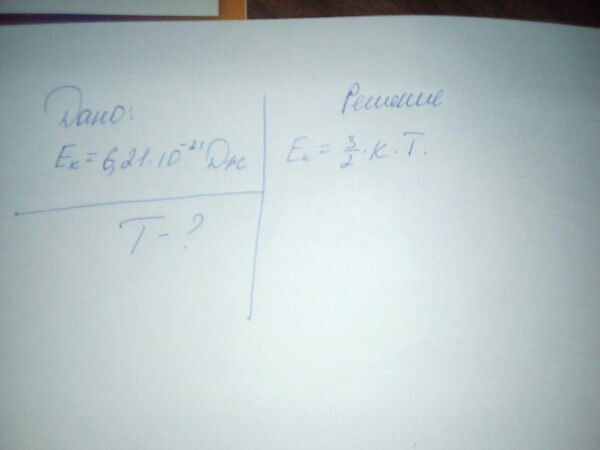 Дано:
Eк = 6,21·10⁻²¹ Дж
T - ?
Решение
Eк = 3/2 · к · T.